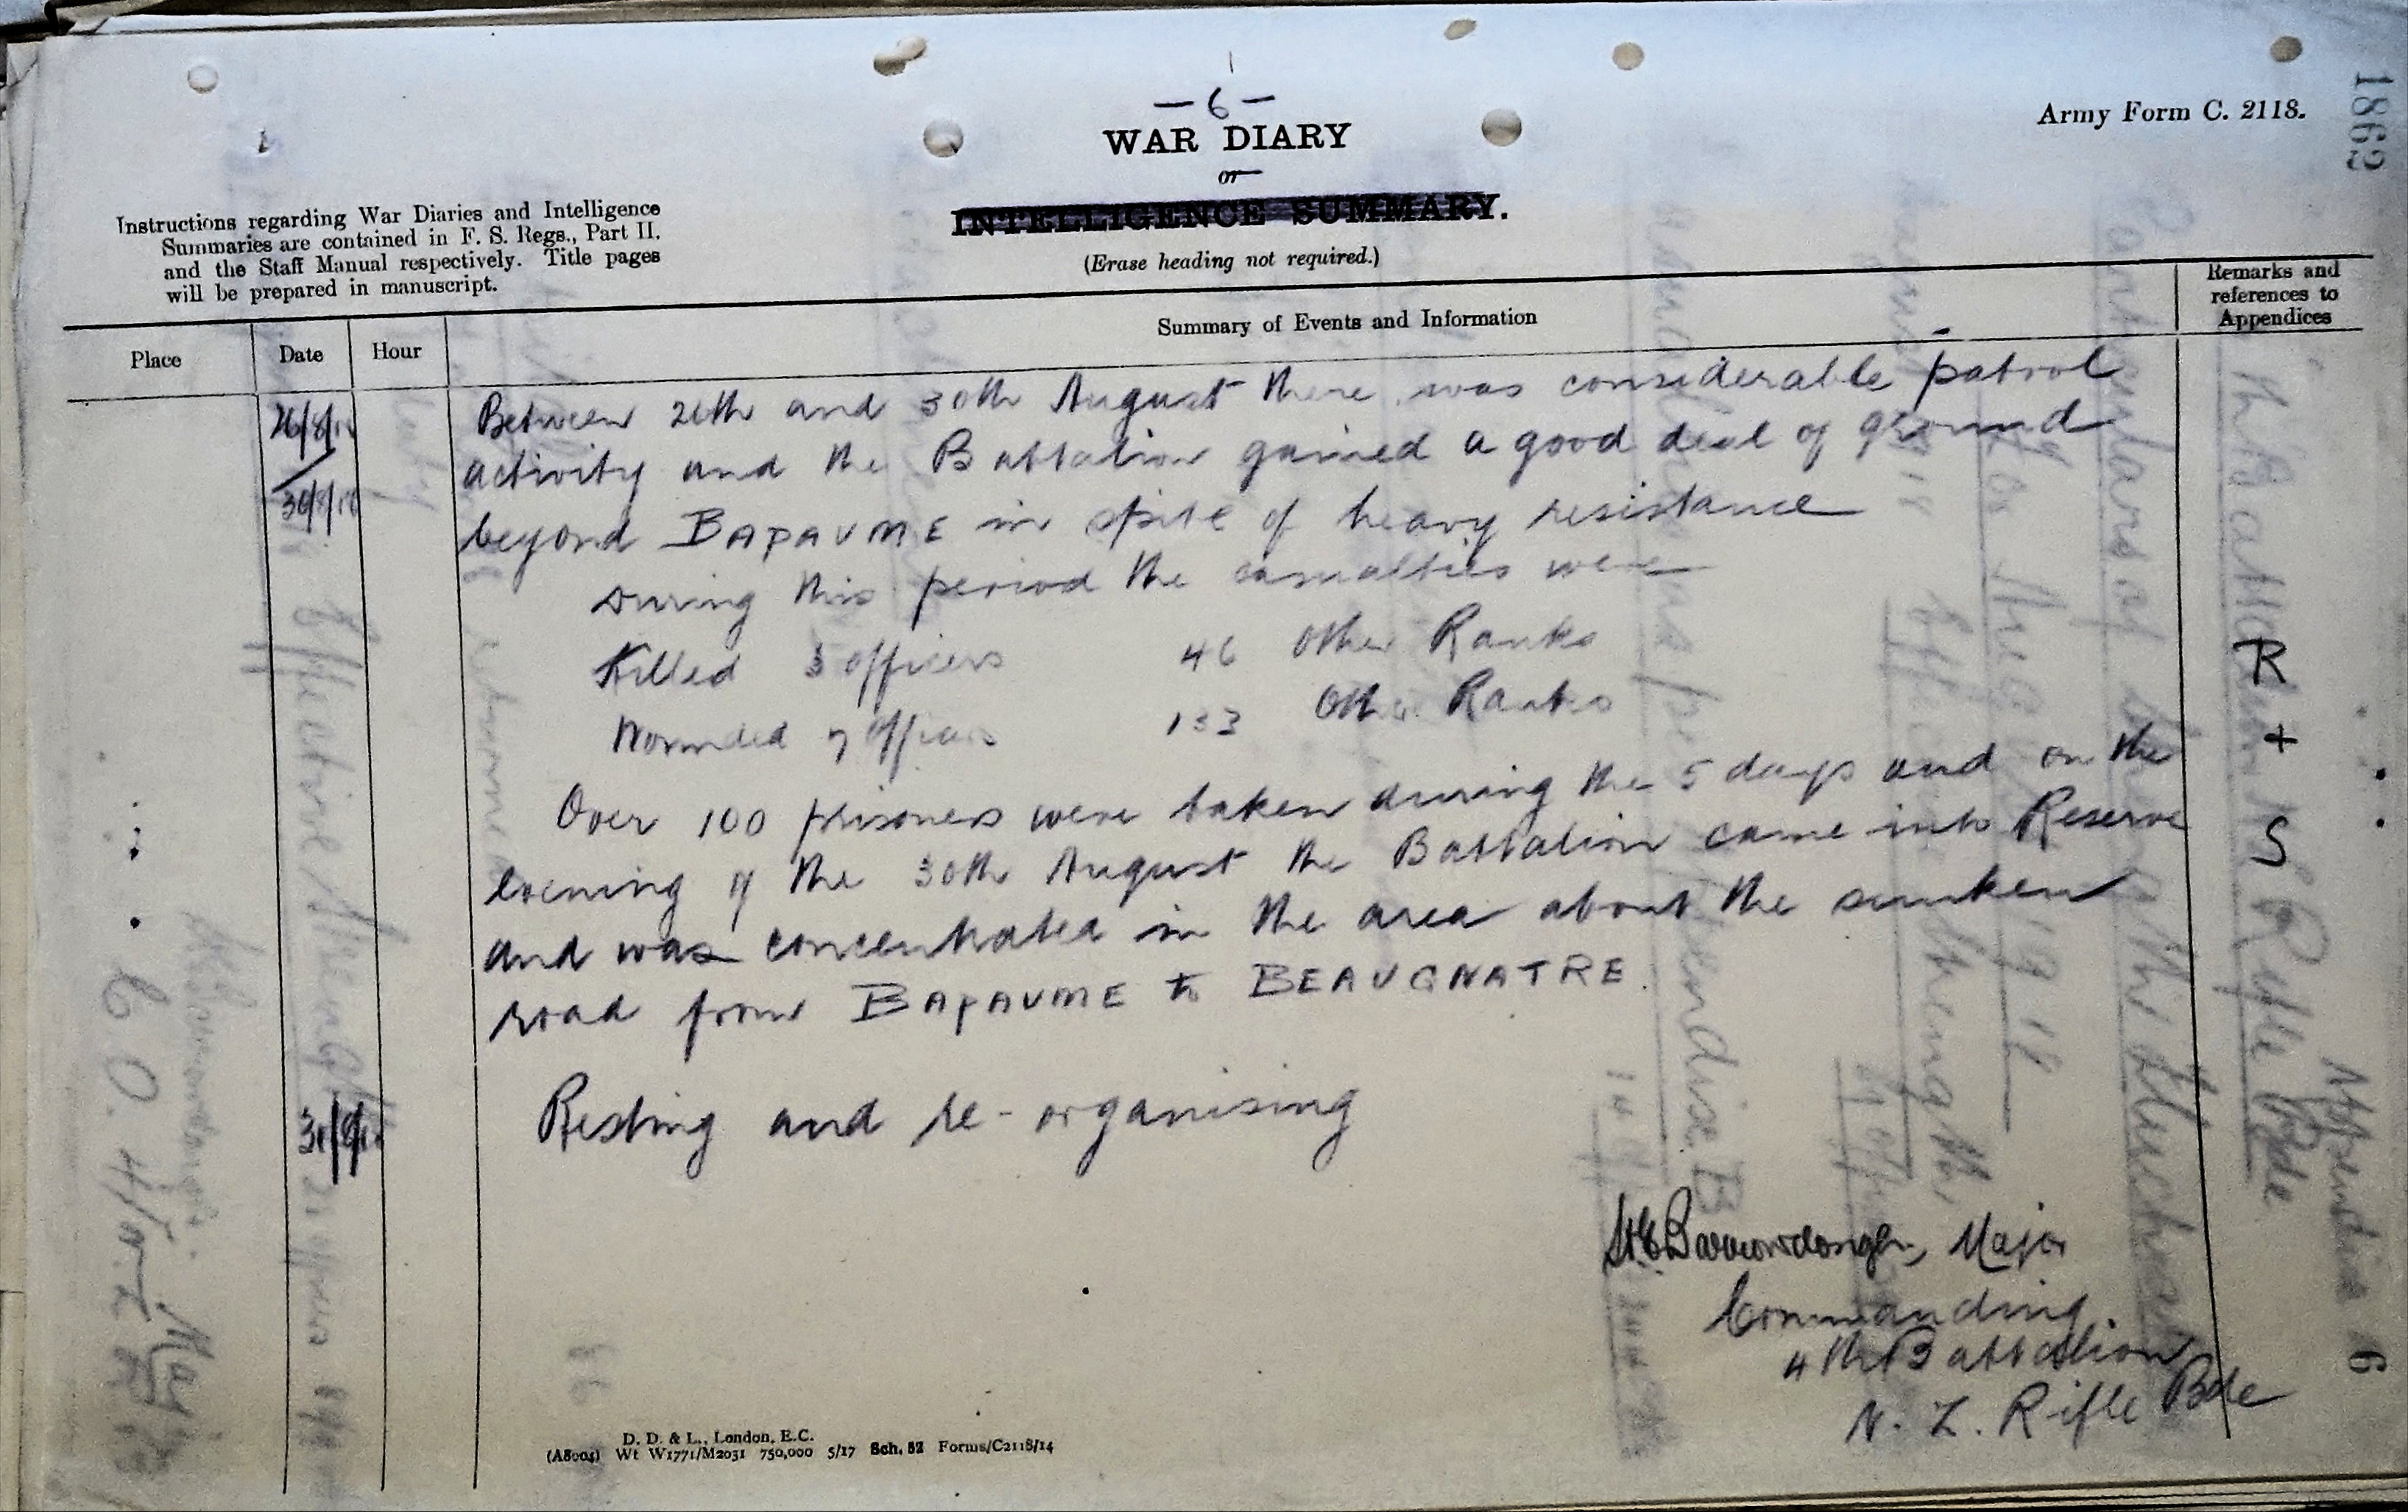 — 6 —
Army Form C. 2118.
1862
WAR DIARY
or
INTELLIGENCE SUMMARY.
(Erase heading not required.)
Instructions regarding War Diaries and Intelligence
Summaries are contained in F. S. Regs., Part II.
and the Staff Manual respectively. Title pages
will be prepared in manuscript.
Place
Date
Hour
Summary of Events and Information
Remarks and
references to
Appendices
26/8/18
30/8/18
Between 26th and 30th August there was considerable patrol
activity and the Battalion gained a good deal of ground
beyond BAPAUME in spite of heavy resistance
During this period the casualties were
Killed officers 46 Other Ranks
Wounded 7 Officers 133 Other Ranks
Over 100 prisoners were taken during the 5 days and on the
evening of the 30th August the Battalion came into Reserve
and was concentrated in the area about the sunken
road from BAPAUME to BEAUGNATRE.
R
+
S
31/8/18
Resting and re-organising
H.E. Barrowclough, Major
Commanding.
4th Battalion
N. Z. Rifle Bde
D. D. & L., London, E.C.
(A8004) Wt W1771/M2031 750,000 5/17 Sch. 52 Forms/C2118/14